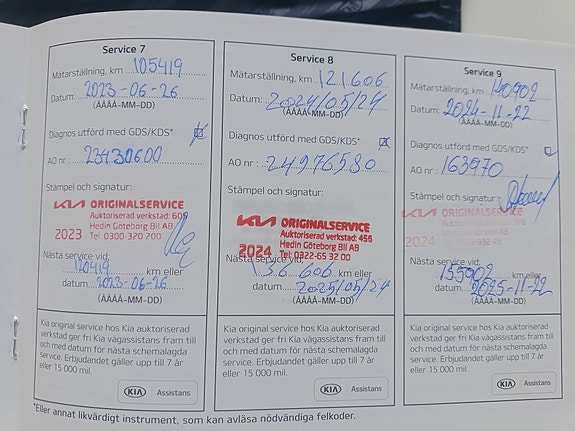 Service 7
Mätarställning, km 105419
Datum: 2023-06-26
(ÅÅÅÅ-MM-DD)
Diagnos utförd med GDS/KDS*
AO nr: 23430600
Stämpel och signatur:
KIA ORIGINALSERVICE
Auktoriserad verkstad:
Hedin Göteborg Bil AB
2023 Tel: 0300-320 200
Nästa service vid:
120419 km eller
datum 2023-06-26
(ÅÅÅÅ-MM-DD)
Kia original service hos Kia auktoriserad
verkstad ger fri Kia vägassistans fram till
och med datum för nästa schemalagda
service. Erbjudandet gäller upp till 7 år
eller 15 000 mil.
KIA Assistans
Service 8
Mätarställning, km 121606
Datum: 2024/05/24
(ÅÅÅÅ-MM-DD)
Diagnos utförd med GDS/KDS*
AO nr: 24976580
Stämpel och signatur:
KIA ORIGINALSERVICE
Auktoriserad verkstad: 456
Hedin Göteborg Bil AB
2024 Tel: 0322-65 32 00
Nästa service vid:
136606 km eller
datum 2025/05/24
(ÅÅÅÅ-MM-DD)
Kia original service hos Kia auktoriserad
verkstad ger fri Kia vägassistans fram till
och med datum för nästa schemalagda
service. Erbjudandet gäller upp till 7 år
eller 15 000 mil.
KIA Assistans
Service 9
Mätarställning, km 140902
Datum: 2024-11-22
(ÅÅÅÅ-MM-DD)
Diagnos utförd med GDS/KDS*
AO nr: 163970
Stämpel och signatur:
KIA ORIGINALSERVICE
2024
Nästa service vid:
155902 km eller
datum 2025-11-22
(ÅÅÅÅ-MM-DD)
Kia original service hos Kia auktoriserad
verkstad ger fri Kia vägassistans fram till
och med datum för nästa schemalagda
service. Erbjudandet gäller upp till 7 år
eller 15 000 mil.
KIA Assistans
*Eller annat likvärdigt instrument, som kan avläsa nödvändiga felkoder.